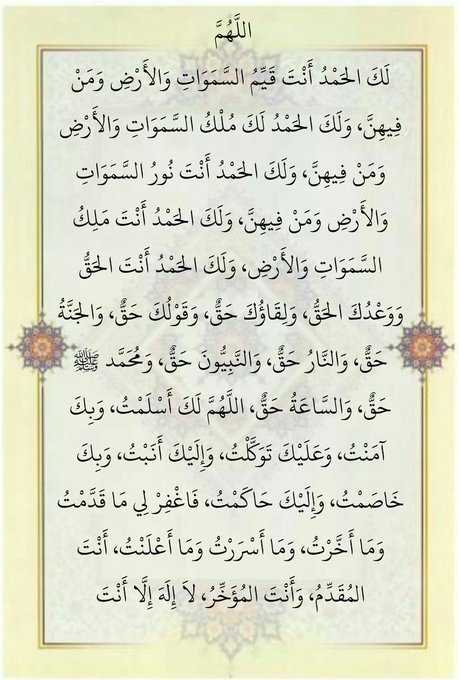 اللَّهُمَّ
لَكَ الحَمْدُ أَنْتَ قَيِّمُ السَّمَوَاتِ وَالأَرْضِ وَمَنْ
فِيهِنَّ، وَلَكَ الحَمْدُ لَكَ مُلْكُ السَّمَوَاتِ وَالأَرْضِ
وَمَنْ فِيهِنَّ، وَلَكَ الحَمْدُ أَنْتَ نُورُ السَّمَوَاتِ
وَالأَرْضِ وَمَنْ فِيهِنَّ، وَلَكَ الحَمْدُ أَنْتَ مَلِكُ
السَّمَوَاتِ وَالأَرْضِ، وَلَكَ الحَمْدُ أَنْتَ الحَقُّ
وَوَعْدُكَ الحَقُّ، وَلِقَاؤُكَ حَقٌّ، وَقَوْلُكَ حَقٌّ، وَالجَنَّةُ
حَقٌّ، وَالنَّارُ حَقٌّ، وَالنَّبِيُّونَ حَقٌّ، وَمُحَمَّد ﷺ
حَقٌّ، وَالسَّاعَةُ حَقٌّ، اللَّهُمَّ لَكَ أَسْلَمْتُ، وَبِكَ
آمَنْتُ، وَعَلَيْكَ تَوَكَّلْتُ، وَإِلَيْكَ أَنَبْتُ، وَبِكَ
خَاصَمْتُ، وَإِلَيْكَ حَاكَمْتُ، فَاغْفِرْ لِي مَا قَدَّمْتُ
وَمَا أَخَّرْتُ، وَمَا أَسْرَرْتُ وَمَا أَعْلَنْتُ، أَنْتَ
المُقَدِّمُ، وَأَنْتَ المُؤَخِّرُ، لاَ إِلَهَ إِلَّا أَنْتَ